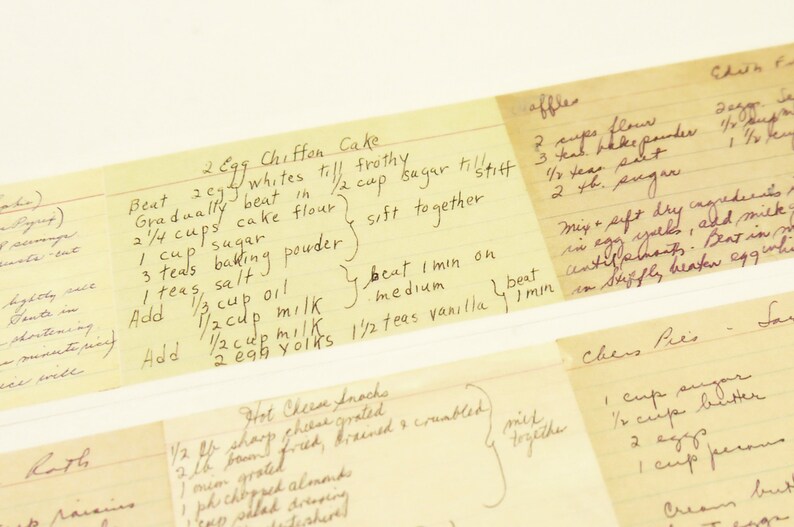 2 Egg Chiffon Cake
Beat 2 egg whites till frothy
Gradually beat in 1/2 cup sugar till stiff
2 1/4 cups cake flour
1 cup sugar
3 teas baking powder
1 teas salt
sift together
Add 1/3 cup oil
1/2 cup milk
beat 1 min on
medium
Add 1/2 cup milk
2 egg yolks 1 1/2 teas vanilla
beat
1 min
affles
Edith
2 cups flour
3 teas. bake powder
1/2 teas. salt
2 tb. sugar
2 eggs
1/2 cup
1 1/2 cup
mix + sift dry ingredients
in egg yolks, add milk
until smooth. Beat in
in stiffly beaten egg whi
lightly
shortening
Hot Cheese Snacks
1/2 lb sharp cheese grated
2 lb bacon fried, drained & crumbled
1 onion grated
1 pk chopped almonds
1 cup salad dressing
mix
together
Chess Pies -
1 cup sugar
1/2 cup butter
2 eggs
1 cup pecans
Cream butt
eggs
Roth
raisins